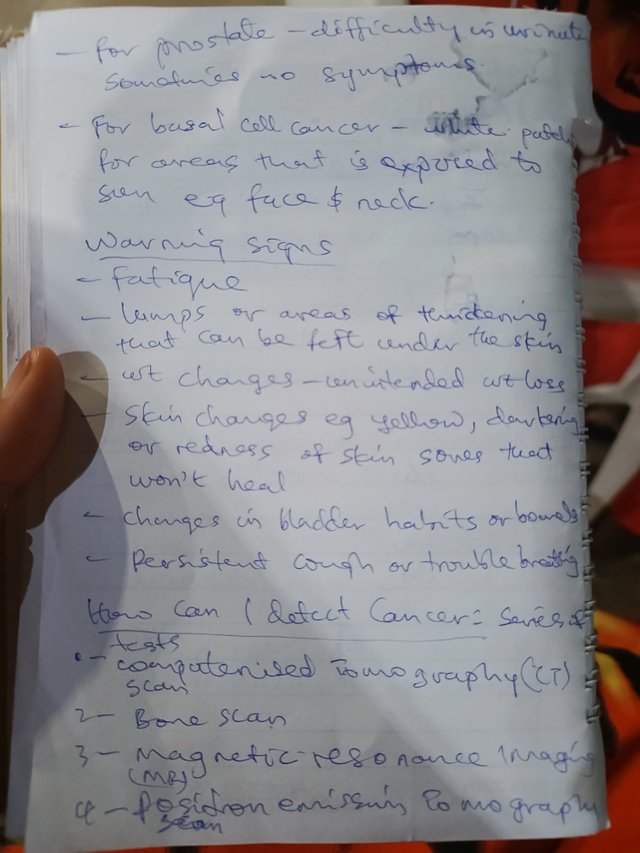 - For prostate - difficulty in urinate
Sometimes no symptoms.
- For basal cell cancer - white patch
for areas that is exposed to
sun eg face & neck.
Warning signs
- Fatigue
- lumps or areas of thickening
that can be felt under the skin
- wt changes - unintended wt loss
- Skin changes eg yellow, darkening
or redness of skin sores that
won't heal
- Changes in bladder habits or bowels
- Persistent cough or trouble breathing
How can I detect Cancer = Series of
tests
1- Computerised Tomography (CT)
scan
2- Bone scan
3- Magnetic-resonance Imaging
(MRI)
4- Positron emission Tomography
scan